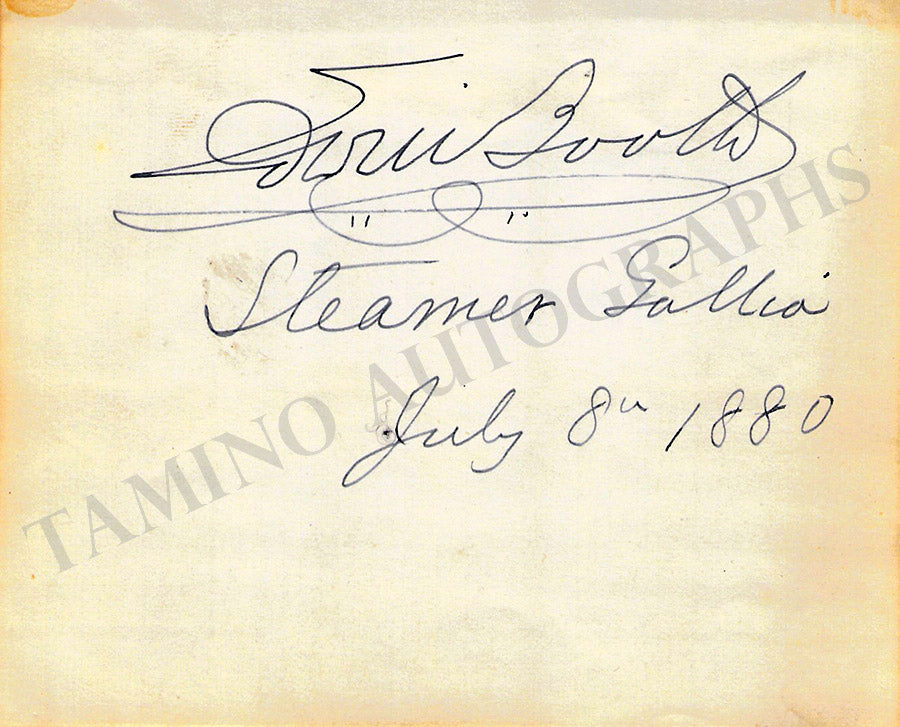 Edwin Booth
Steamer Gallia
July 8th 1880
TAMINO AUTOGRAPHS